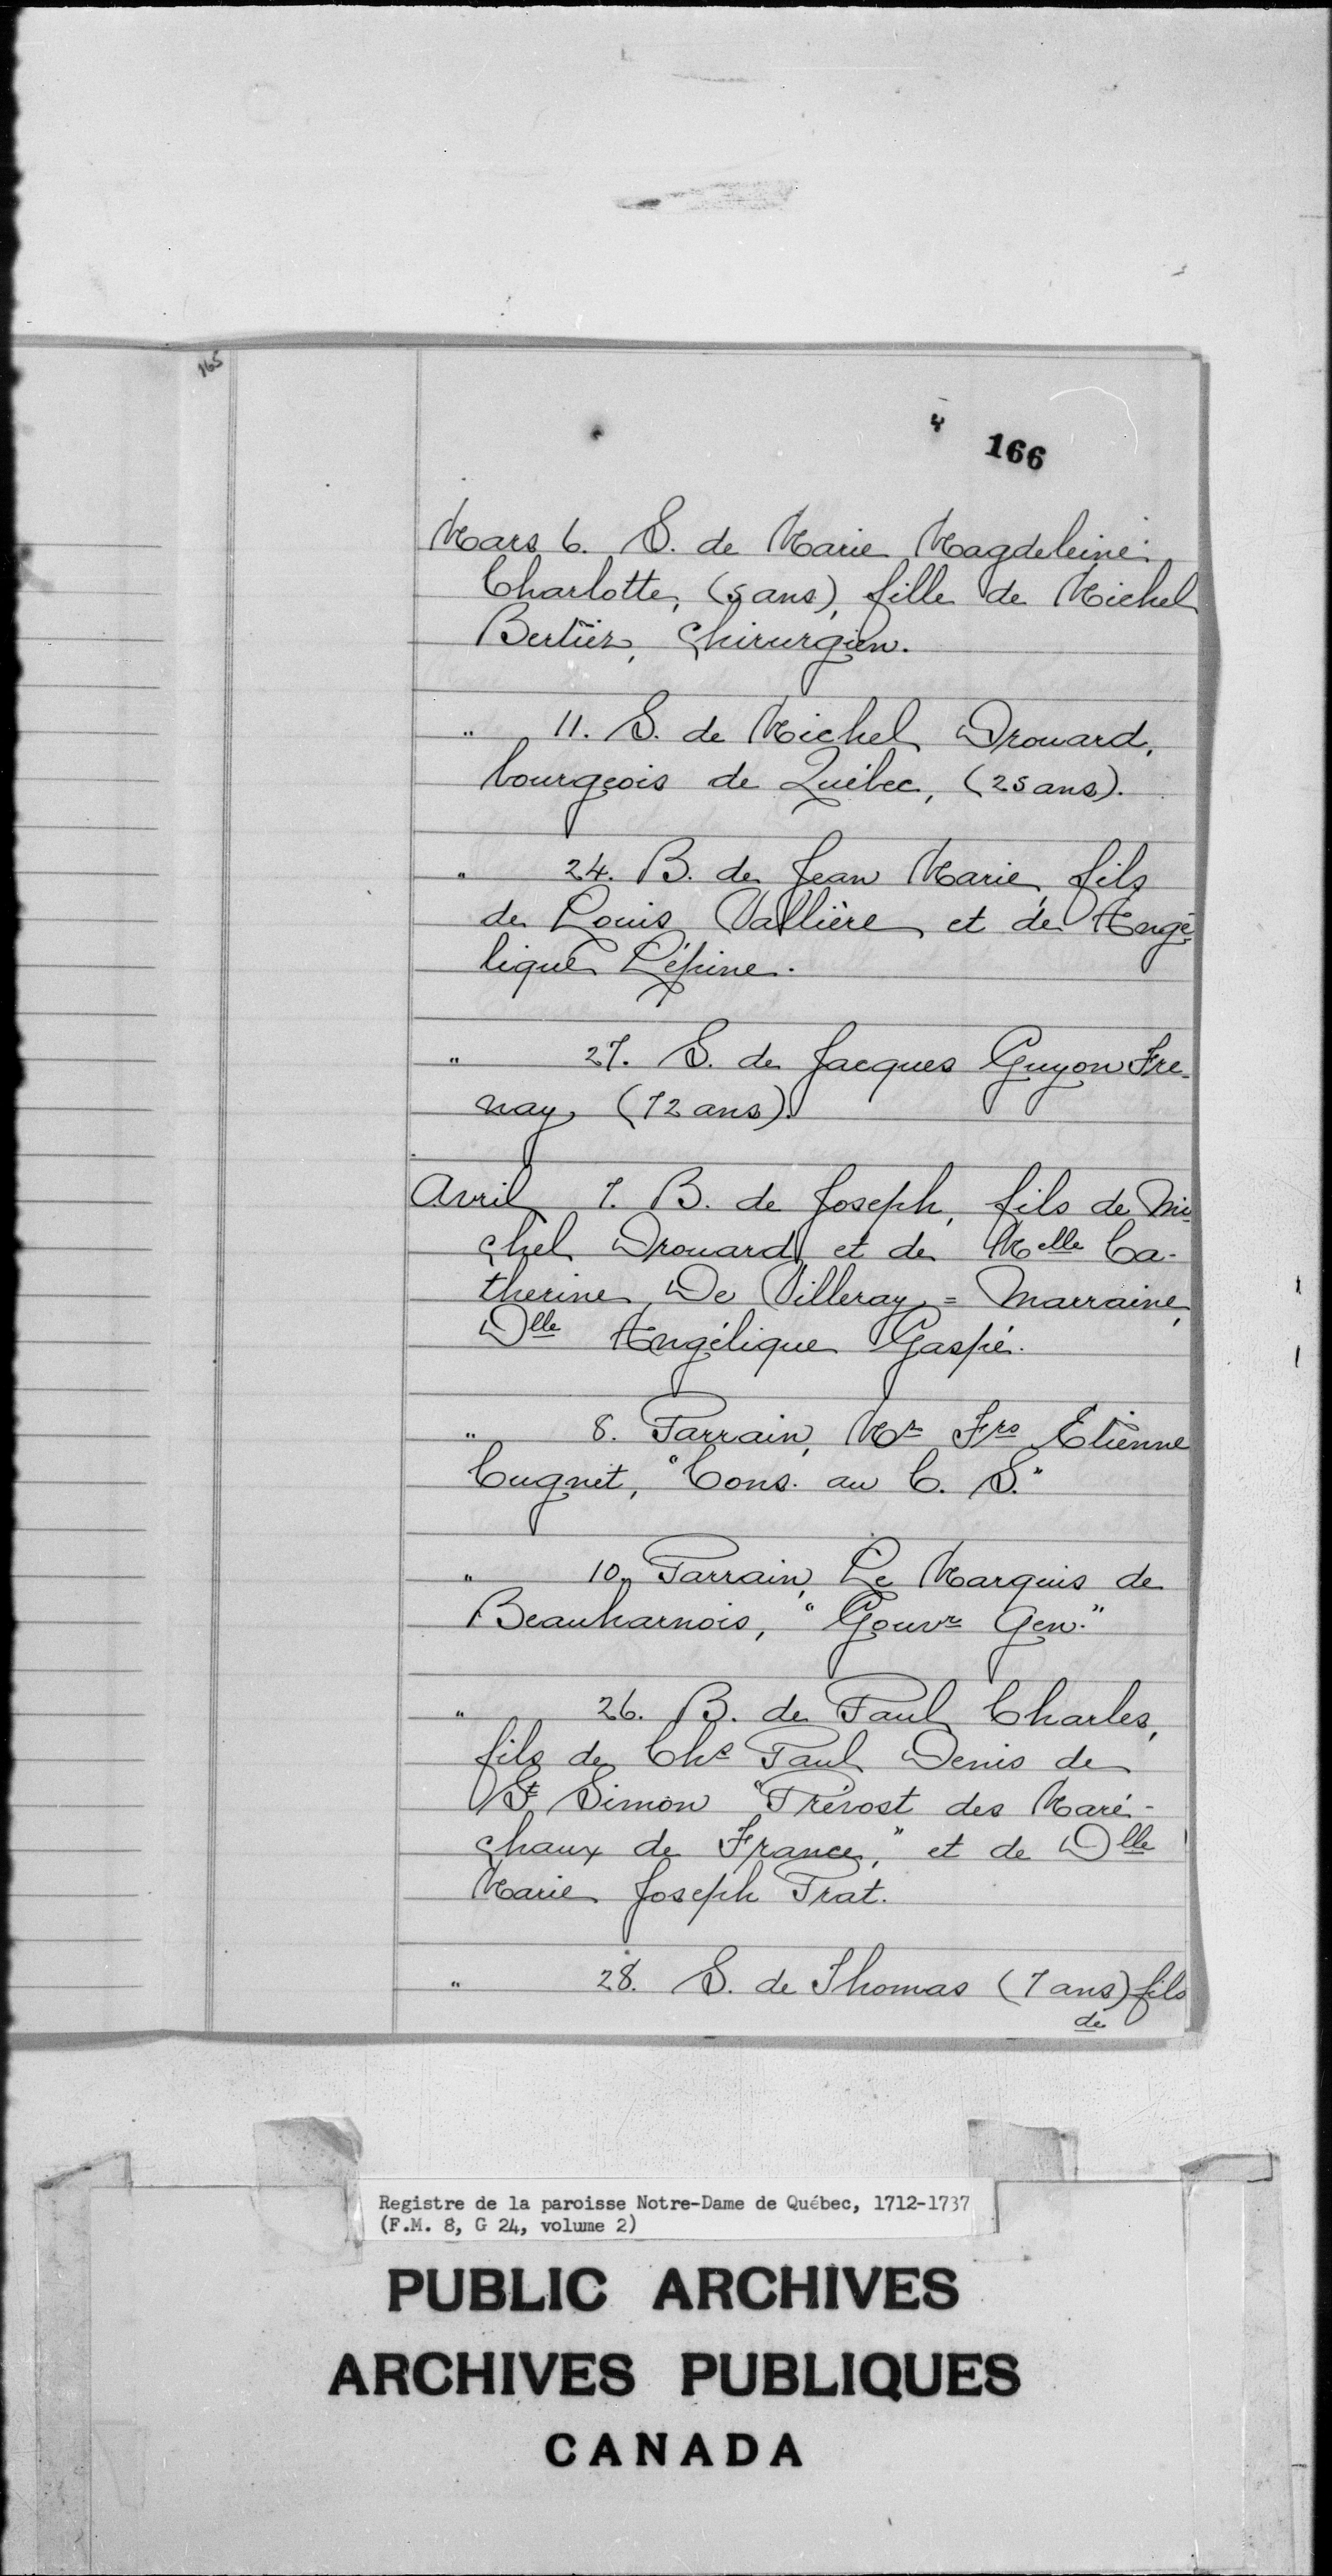 165
166
Mars 6. S. de Marie Magdeleine
Charlotte, (5 ans), fille de Michel
Bertier, chirurgien.
" 11. S. de Michel Drouard,
bourgeois de Québec, (25 ans).
" 24. B. de Jean Marie, fils
de Louis Vallière et de Angé-
lique Lépine.
" 27. S. de Jacques Guyon Fre-
nay, (72 ans).
Avril 7. B. de Joseph, fils de Mi-
chel Drouard et de Melle Ca-
therine De Villeray = Marraine,
Dlle Angélique Gaspé.
" 8. Parrain, Mr Frs Etienne
Cugnet, "Cons. au C. S."
" 10. Parrain, Le Marquis de
Beauharnois, "Gouvr Gen."
" 26. B. de Paul Charles,
fils de Chs Paul Denis de
St Simon "Prévost des Maré-
chaux de France," et de Dlle
Marie Joseph Prat.
" 28. S. de Thomas (7 ans) fils
de
Registre de la paroisse Notre-Dame de Québec, 1712-1737
(F.M. 8, G 24, volume 2)
PUBLIC ARCHIVES
ARCHIVES PUBLIQUES
CANADA